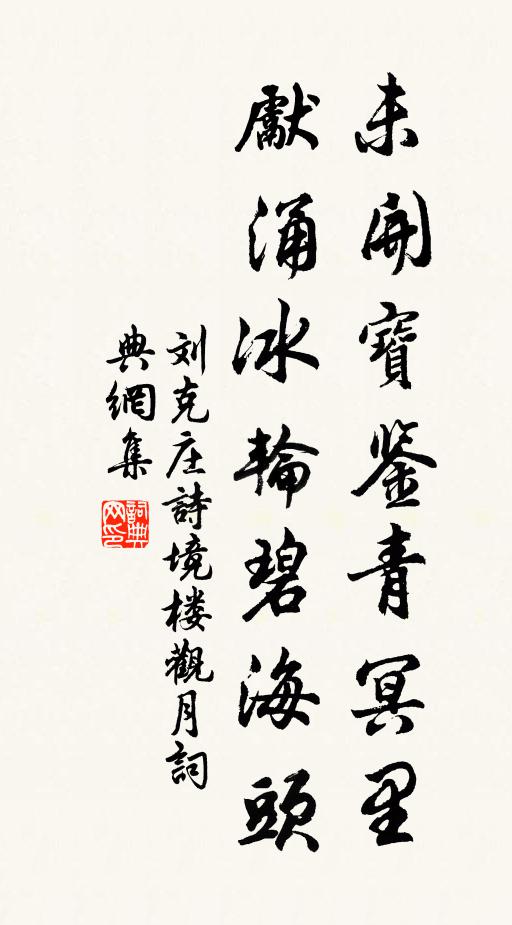 未開寶鑒青冥里
獻涌冰輪碧海頭
刘克庄詩境楼觀月詞
典網集
詞典
网印